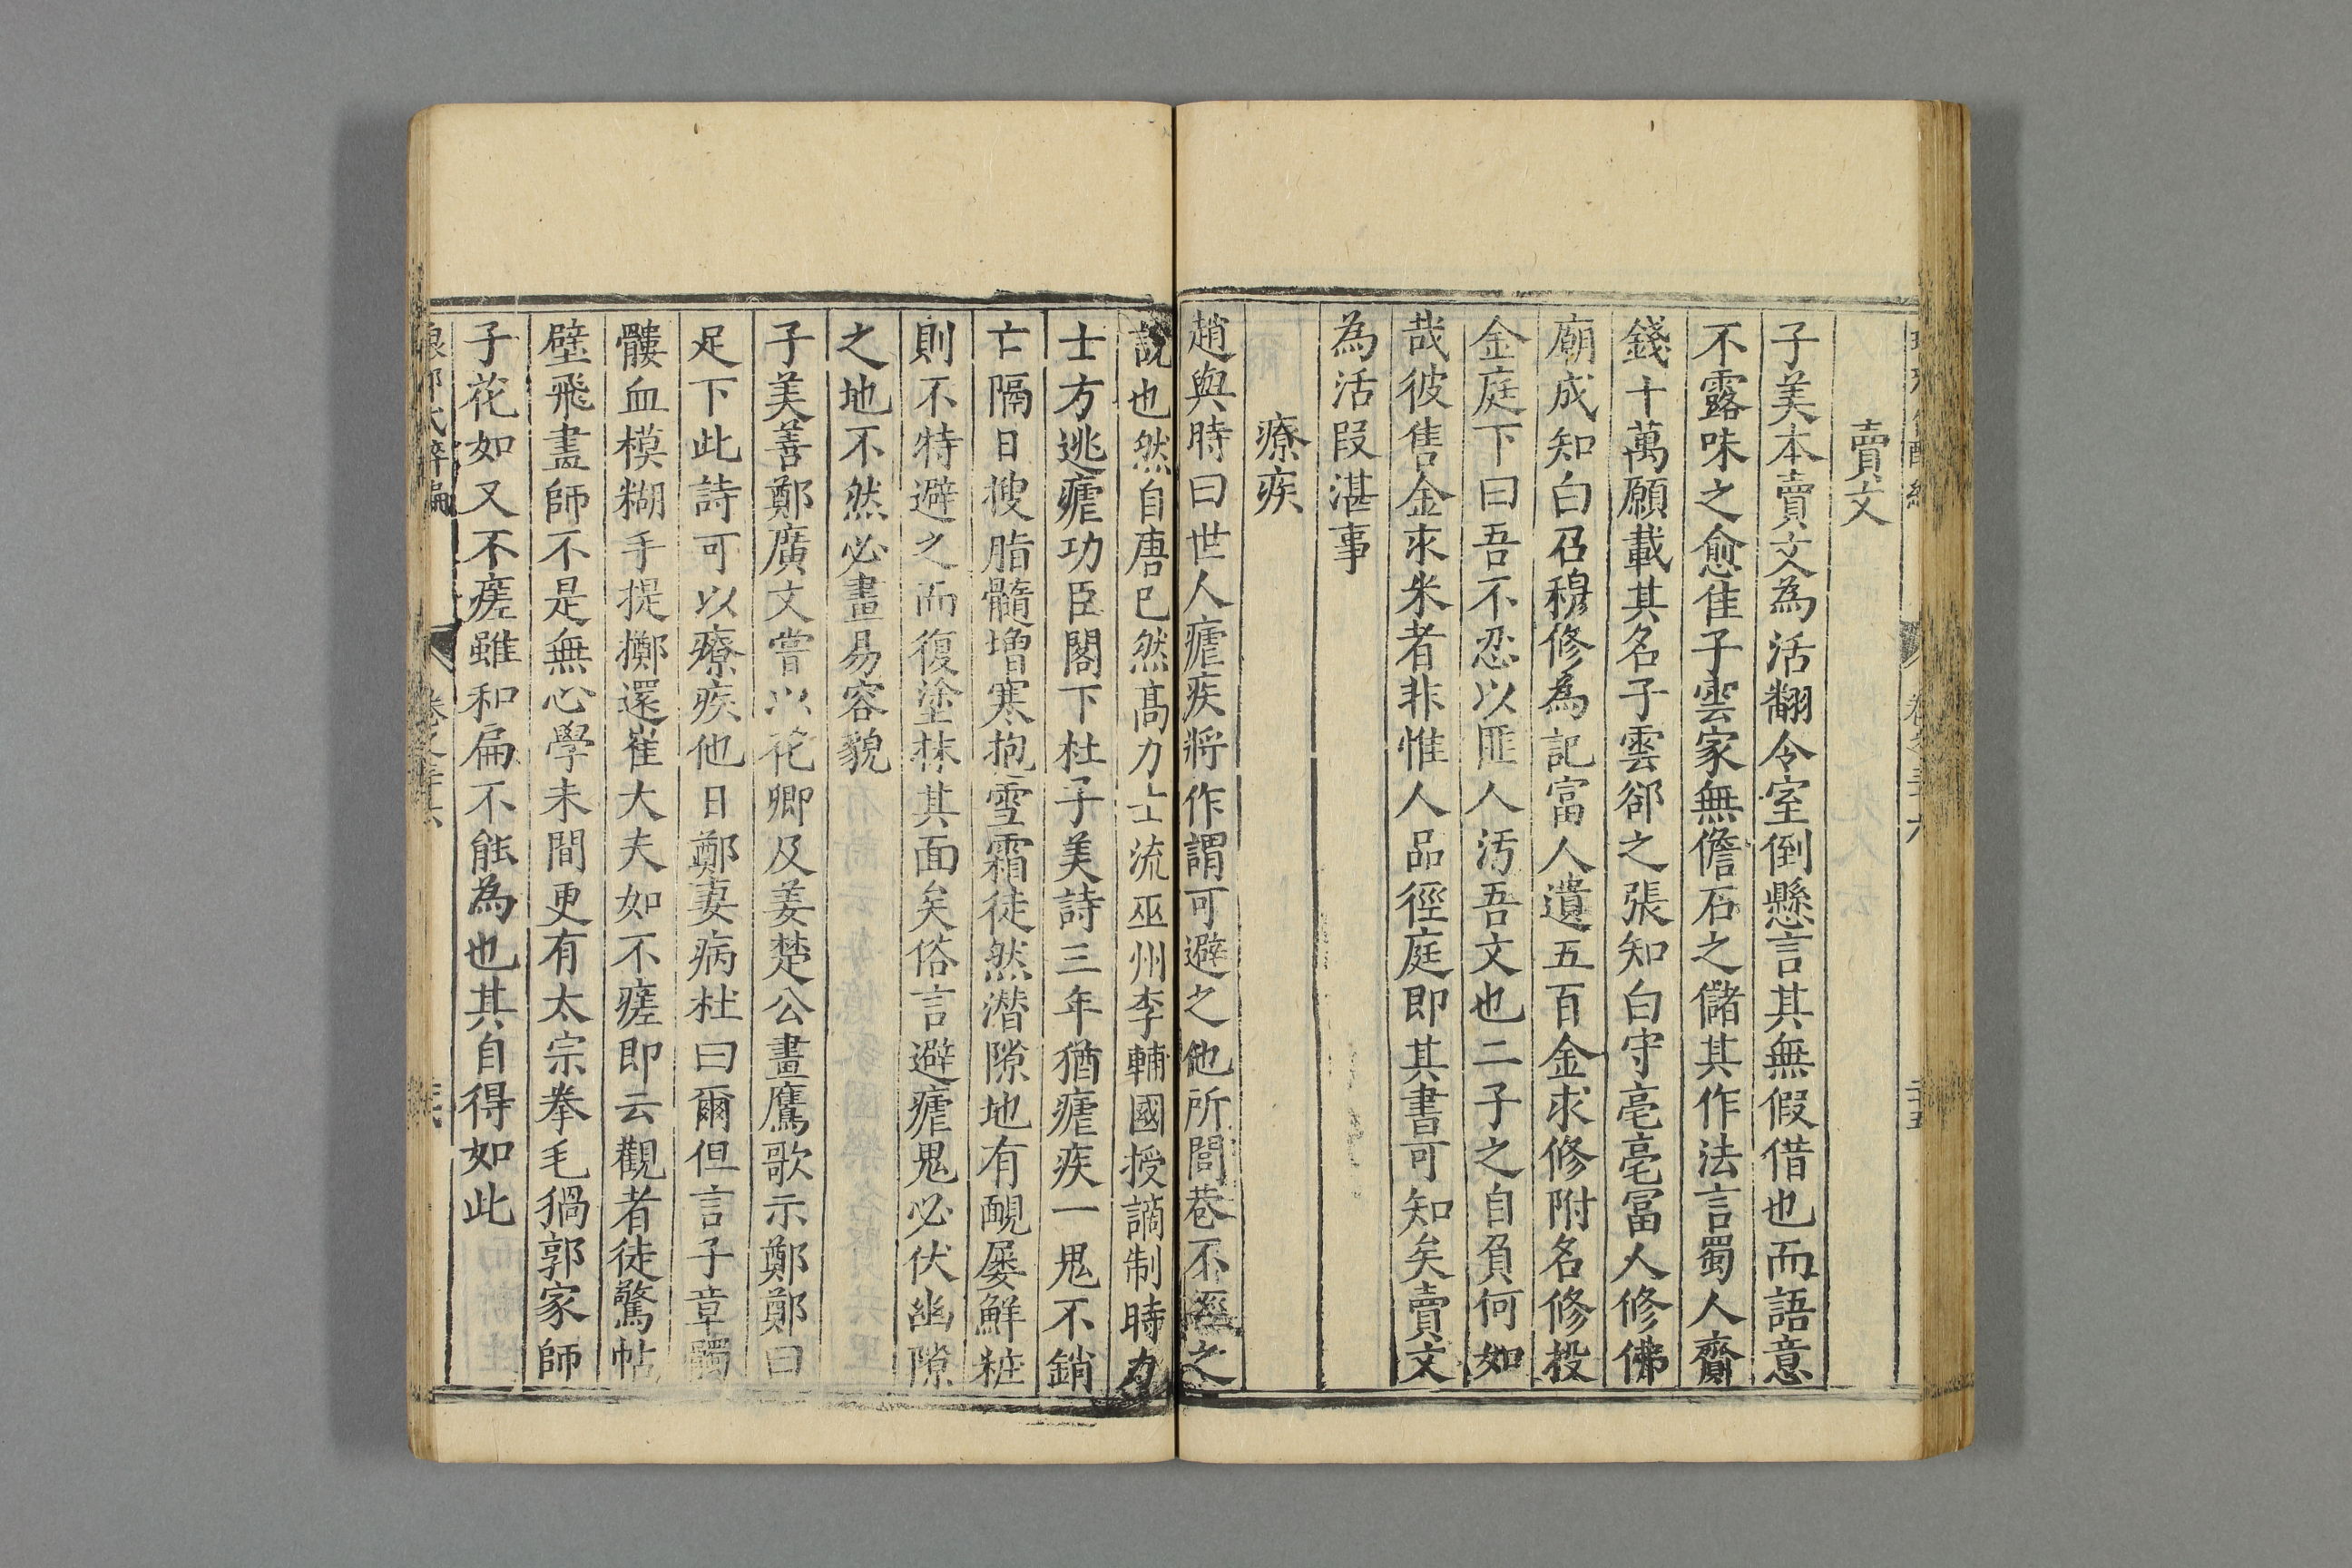 賣文
子美本賣文為活翻令室倒懸言其無假借也而語意
不露味之愈隹子雲家無儋石之儲其作法言蜀人齎
錢十萬願載其名子雲郤之張知白守亳亳冨人修佛
廟成知白召穆修為記富人遺五百金求修附名修投
金庭下曰吾不忍以匪人汚吾文也二子之自負何如
哉彼售金求米者非惟人品徑庭即其書可知矣賣文
為活叚湛事
療疾
趙與時曰世人瘧疾將作謂可避之他所閭巷不經之
說也然自唐已然高力士流巫州李輔國授謫制時力
士方逃瘧功臣閣下杜子美詩三年猶瘧疾一鬼不銷
亡隔日搜脂髓增寒抱雪霜徒然潛隙地有靦屡鮮粧
則不特避之而復塗抹其面矣俗言避瘧鬼必伏幽隙
之地不然必畫易容貌
子美善鄭廣文嘗以花卿及姜楚公畫鷹歌示鄭鄭曰
足下此詩可以療疾他日鄭妻病杜曰爾但言子章髑
髏血模糊手提擲還崔大夫如不瘥即云觀者徒驚帖
壁飛畫師不是無心學未間更有太宗拳毛猧郭家師
子花如又不瘥雖和扁不能為也其自得如此